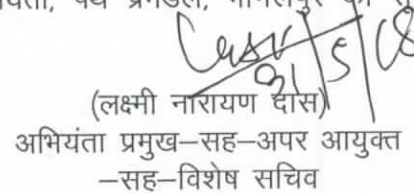 पथ प्रमंडल,
31/5/08
(लक्ष्मी नारायण दास)
अभियंता प्रमुख–सह–अपर आयुक्त
–सह–विशेष सचिव